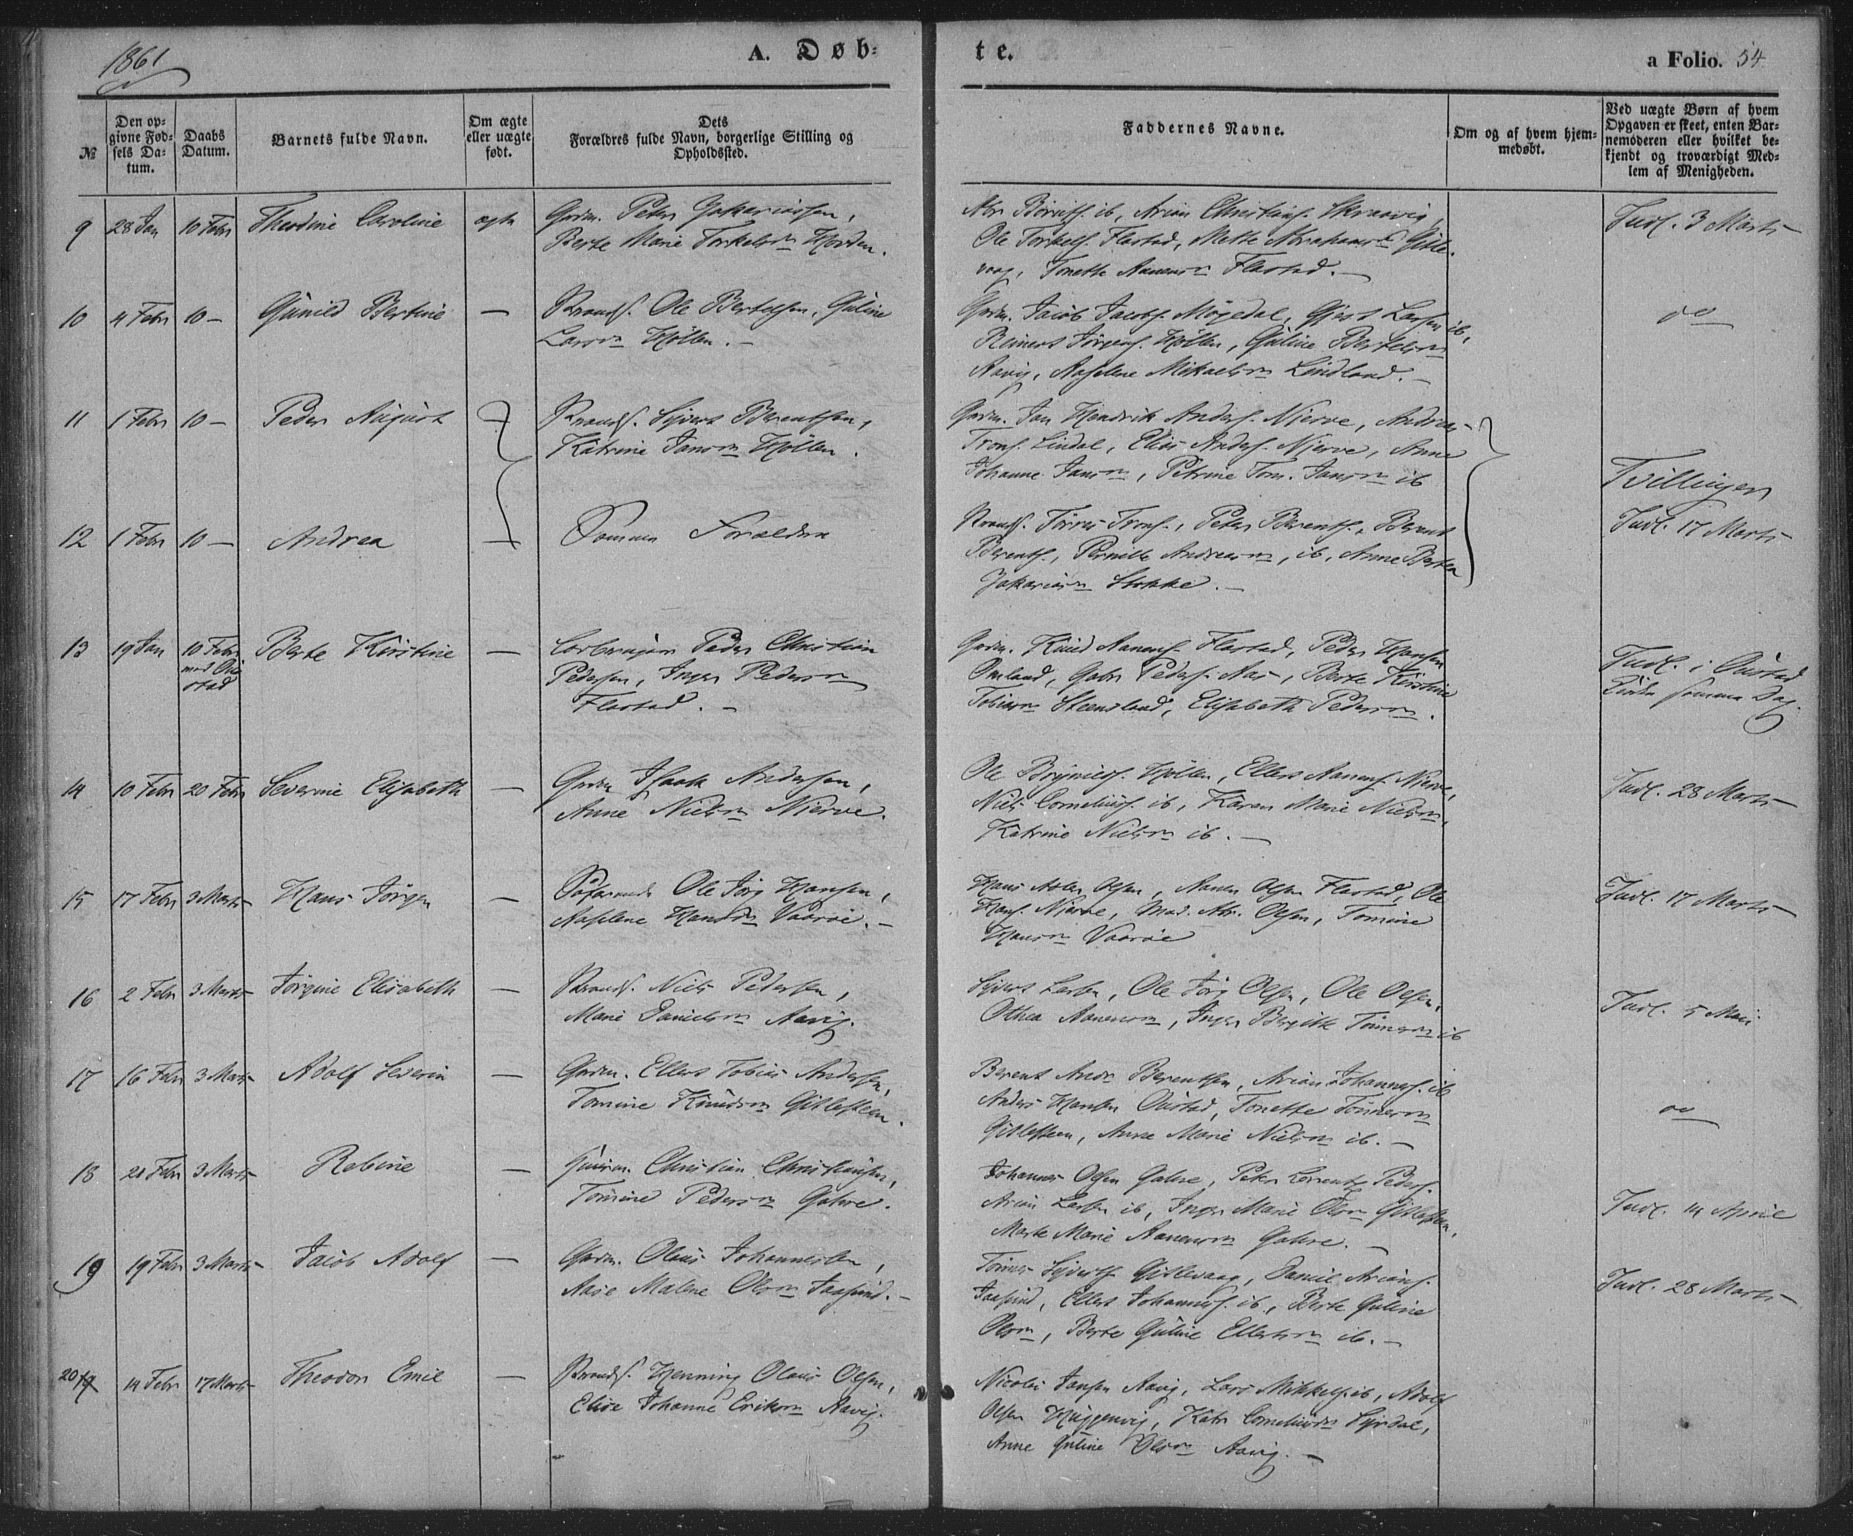 1861
A. Døb-
te.
a Folio. 54
№
Den op-
givne Fød-
sels Da-
tum.
Daabs
Datum.
Barnets fulde Navn.
Om ægte
eller uægte
født.
Dets
Forældres fulde Navn, borgerlige Stilling og
Opholdssted.
Faddernes Navne.
Om og af hvem hjem-
medøbt.
Ved uægte Børn af hvem
Opgaven er skeet, enten Bar-
nemoderen eller hvilket be-
kjendt og troværdigt Med-
lem af Menigheden.
9 28 Jan 10 Febr Theodine Caroline ægte
Peter Zakariassen,
Berte Marie Torkelsn
Arian Christians.
Ole Torkels. Flastad, Mette Abrahams Gitle-
vaag, Tonette Flastad. —
Indl. 3 Marts
10 4 Febr 10 — Gunild Bertine —
Strands. Ole Bertelsen, Guline
Larsn Kjøllen. —
Jacob Jacobs. Møgedal, Gjert Larsen ib,
Reinert Jørgens. Kjøllen, Guline Bertelsn
Aavig, Aaselene Mikaelsn Lindland. —
do
11 1 Febr 10 — Peder August
Strands. Sivert Berentsen,
Katrine Jansn Kjøllen.
Jan Hendrik Anders. Njerve, Andreas
Trons. Lindal, Elias Anders. Njerve, Anne
Johanne Jansn, Petrine Tom. Jansn ib
Tvillinger
12 1 Febr 10 — Andrea —
Samme Forældre
Strands. Tørres Trons., Peter Berents., Berent
Berents., Pernille Andreasn, ib, Anne Bertea
Zakariasn Stokke. —
Indl. 17 Marts
13 19 Jan 10 Febr Berte Kirstine —
ved Øi-
stad
Peder Christian
Pedersen, Inger Pedersn
Flastad. —
Knud Aanens. Flastad, Peder Hansen
Omland, Gabr. Peders. Nas, Berte Kirstine
Tobiasn Steensland, Elisabeth Pedersn.
Indl. i Øiestad
Kirke samme Dag.
14 10 Febr 20 Febr Severine Elisabeth —
Isaak Andersen,
Anne Nielsn Njerve.
Ole Brynilds. Kjøllen, Ellert Aanens. Njerve,
Niels Cornelius. ib, Karen Marie Nielsn,
Katrine Nielsn ib. —
Indl. 28 Marts
15 17 Febr 3 Marts Hans Jørgen —
Søfarende Ole Jørg Hansen,
Aaselene Hansdr Vaarøe. —
Hans Asler Olsen, Aanen Olsen Flastad, Ole
Hans. Njerve, Mad. Abr. Olsen, Tomine
Hansn Vaarøe
Indl. 17 Marts
16 2 Febr 3 Marts Jørgine Elisabeth —
Strands. Niels Pedersen,
Marie Danielsn Aavig.
Sivert Larsen, Ole Jørg Olsen, Ole Olsen,
Othea Aanensn, Inger Bergitte Tønnesn ib
Indl. 5 Mai
17 16 Febr 3 Marts Adolf Severin —
Ellert Tobias Andersen,
Tomine Knudsn Gitlesteen.
Berent Andr. Berentsen, Arian Johannes. ib
Anders Hansen Øistad, Tonette Tønnesn
Gitlesteen, Anne Marie Nielsn ib. —
do
18 21 Febr 3 Marts Rebine —
Christian Christiansen,
Tomine Pedersn Gahre.
Johannes Olsen Gahre, Peter Lorentz Peders.
Arian Larsen ib, Inger Marie Olsn Gitlesteen,
Marte Marie Aanensn Gahre. —
Indl. 14 April
19 19 Febr 3 Marts Jacob Adolf —
Olaus Johannesen,
Aase Malene Olsn Faasund. —
Tønnes Siverts. Gitlevaag, Daniel Arians.
Faasund, Ellert Johannes. ib., Berte Guline
Olsn, Berte Guline Ellertsn ib. —
Indl. 28 Marts
20 14 Febr 17 Marts Theodor Emil —
Strands. Henning Olaus Olsen,
Elise Johanne Eriksn Aavig.
Nicolai Jansen Aavig, Lars Mikkels. ib, Adolf
Olsen Huggenvig, Katr. Corneliusdr Syrdal,
Anne Guline Olsn Aavig. —